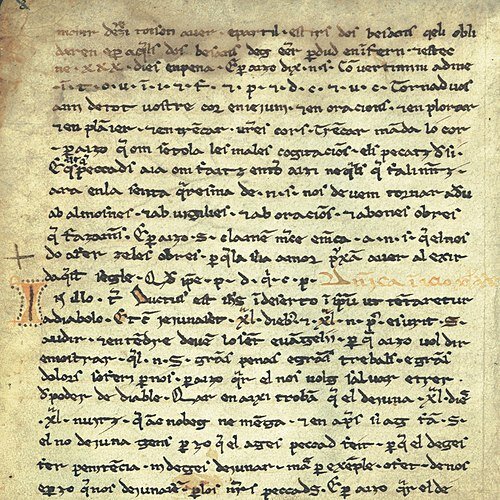 morir de · e son auer · epartil · estirs dos besants qeli obli
daren e p aqels dos besans deg eer pdud en ifern · e estec
ne · xxx · dies en pena · E p aizo dix · n · s · Convertimini ad me
· i · t · o · u · i · i · r · f · r · p · r · d · c · r · u · c · Tornad uos
a mi de tot uostre cor en ieiuni · r en oracions · r en plorar
r en planer · r en trecar · ures cors · Trecar mada lo cor
p aizo q om se tola les males cogitacios · els pecatz de si ·
E qals peccads aia om fait z entro aizi ne qals q falimtz ·
ara en la senta qresma · de · n · s · nos deuem tornar a deu
ab almosnes · r ab uirgilies · r ab oracios · r abones obres
q fazams · E p aizo · S · clamem mce emca · a · n · s · q el nos
do afer zeles obres · p qe la sua amor pxam auer al exir
daqst segle · Qd ipse · p · d · qr · c · p · Dnica i · i xl
IN illo · t · Ductus est ihs i deserto i spu ut temtaretur
a diabolo · Et cu ieiunasset · xl · dieb · r · xl · n · p · esurit · S ·
audir · r entedre deue lo set euageli · p q aizo uol dir
e mostrar · ql · n · S · gras penas e gras trebals · e gras
dolors soferi p nos · p aizo qr el nos uolg saluar e trer
d poder de diable · Qar en aixi troba q el deiuna · xl · dies
· xl · nuitz · q ac no beg ne mega · r en aps si ag fa · S ·
el no deiuna gens p zo q el ages peccad feit · p q el deges
fer penitecia · ni deges deiunar · mas p exeple · ofer · de nos
e p zo q nos deiunase plos nres peccads · E p aizo qr el de